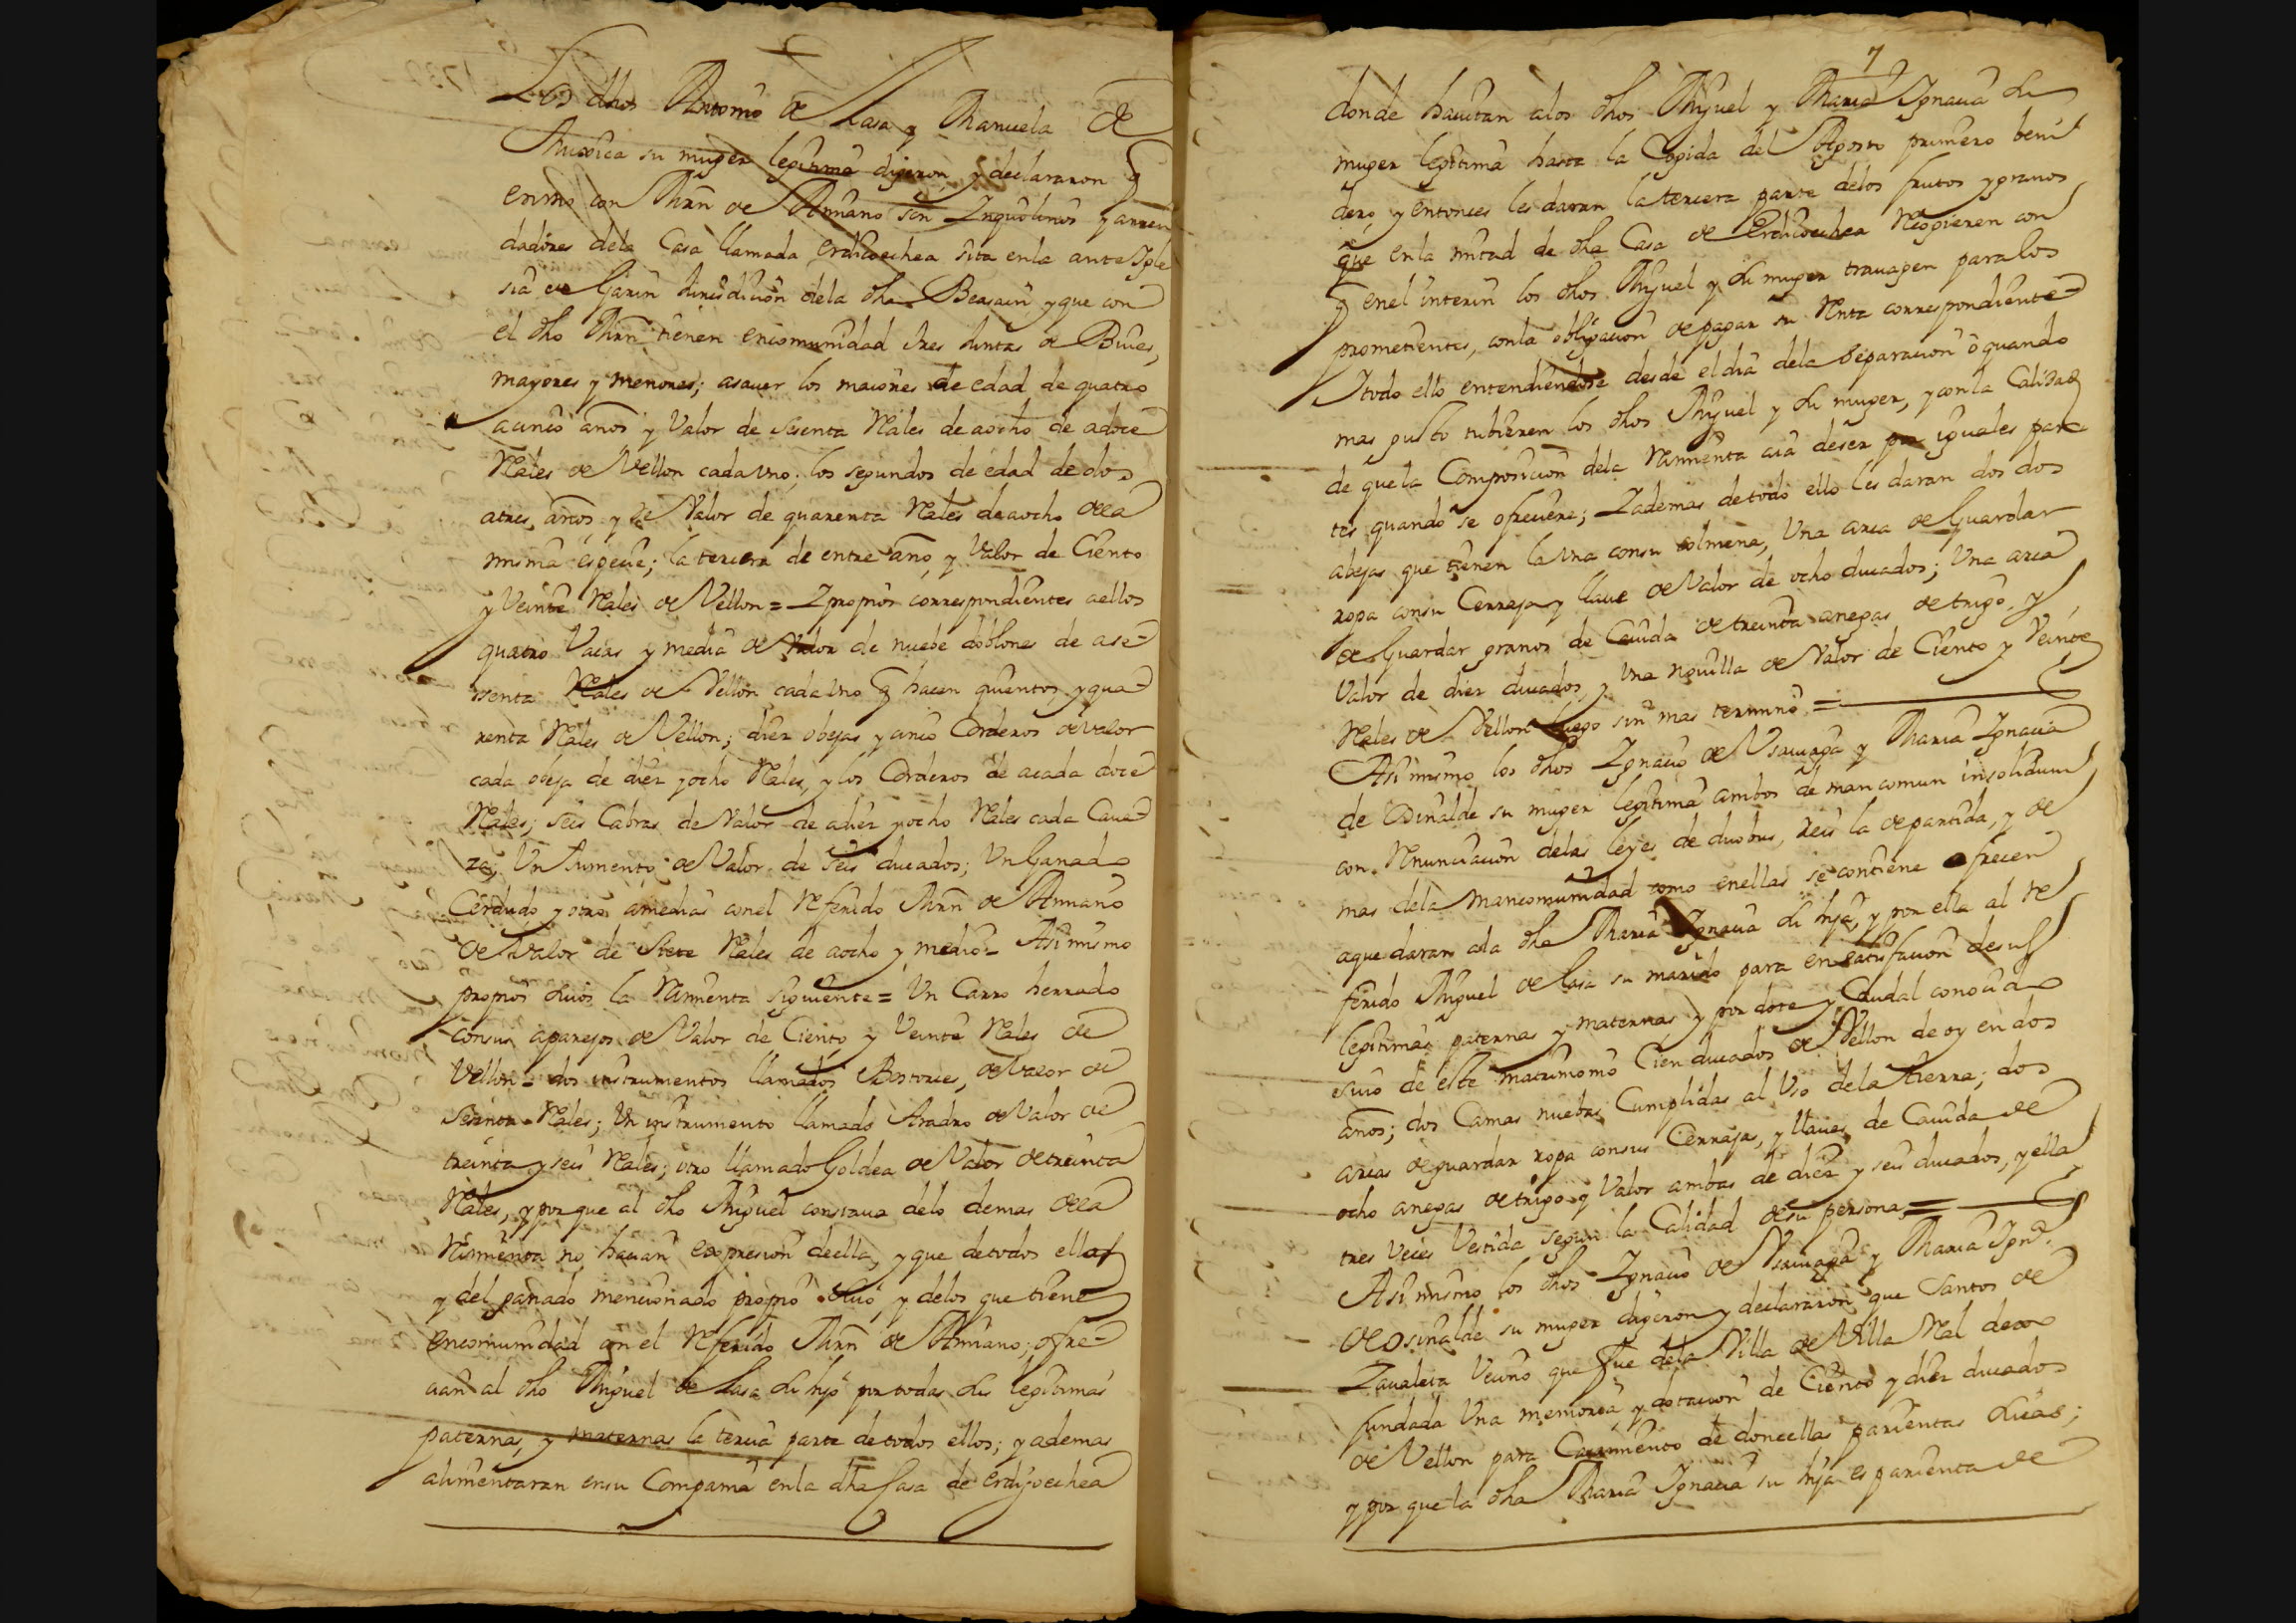 Los dhos Antonio de Lasa y Manuela de
Muxica su muger legitima digeron, y declararon q
enmo con Mrn de Amiano son Inquolinos y arren
dadores dela Casa llamada Erdicoechea sita enla ante Igle
sia de Garin Jurisdicion dela dha Beasain y que con
el dho Mrn tienen encomunidad tres Juntas de Bueies,
mayores y menores; asauer los maiores de edad de quatro
acinco años y Valor de sesenta Rales de aocho de adoce
Rales de Vellon cada vno; los segundos de edad de dos
atres, años y de Valor de quarenta Rales deaocho dela
misma especie; la tercera de entre año, y Valor de Ciento
y Veinte Rales de Vellon = I propios correspondientes aellos
quatro Vacas y media de Valor de nuebe doblones de ase
senta Rales de Vellon cada vno q hacen quientos, y qua
renta Rales de Vellon; diez obejas y cinco Corderos de valor
cada obeja de diez yocho Rales, y los Corderos de acada doce
Rales; seis Cabras de Valor de adiez yocho Rales cada Caue
za; Un Jumento de Valor de seis ducados; Un Ganado
Cerdudo, y otro amedias conel Referido Mrn de Amiano
de Valor de Siete Rales de aocho y medio = Asi mismo
propios suios la Rimienta siguiente = Un Carro herrado
consus aparejos de Valor de Ciento y Veinte Rales de
Vellon = dos instrumentos llamados Bostorie, de Valor de
Sesenta Rales; Un instrumento llamado Aradro de Valor de
treinta y seis Rales; otro llamado Goldea de Valor de treinta
Rales, y porque al dho Miguel constaua delo demas dela
Rimienta no hacian expresion deella, y que detodos ellos
y del ganado mencionado propio suio y delos que tiene
encomunidad con el Referido Mrn de Amiano; ofre
cian al dho Miguel de Lasa su hijo por todas sus legitimas
paternas, y maternas la tercia parte detodos ellos; y ademas
alimentaran ensu Compañia enla dha Casa de Erdigoechea
7
donde hauitan alos dhos Miguel y Maria Ignacia su
muger legitima hasta la Cogida del Agosto primero beni
dero, y entonces les daran la tercera parte delos frutos y granos
que enla mitad de dha Casa de Erdicoechea Recogieren con
q enel interin los dhos Miguel y su muger trauagen para los
prometientes, conla obligacion de pagar su Renta correspondiente
I todo ello entendiendose desde el dia dela Separacion ô quando
mas gusto tubieren los dhos Miguel y su muger, y conla Calidad
de que la Composicion dela Rimienta aia deser por iguales par
tes quando se ofreciere; I ademas detodo ello les daran dos dos
abejas que tienen la vna consu colmena, Una arca de Guardar
ropa consu Cerraja y llaue de Valor de ocho ducados; Una arca
de Guardar granos de Cauida de treinta anegas de trigo, y
Valor de diez ducados, y Una nouilla de Valor de Ciento y Veinte
Rales de Vellon luego sin mas termino =
Asi mismo los dhos Ignacio de Usauiaga y Maria Ignacia
de Osinalde su muger legitima ambos de mancomun insolidum
con Renunciacion delas leyes de duobus, Reis la departida, y de
mas dela Mancomunidad como enellas se contiene ofrecen
aque daran ala dha Maria Ignacia su hija, y por ella al Re
ferido Miguel de Lasa su marido para en satisfacion desus
legitimas paternas y maternas y por dote y Caudal conocido
suio de este matrimonio Cien ducados de Vellon de oy en dos
años; dos Camas nuebas Cumplidas al Vso dela tierra; dos
arcas deguardar ropa consus Cerrajas, y llaues, de Cauida de
ocho anegas de trigo y Valor ambas de diez y seis ducados, y ella
tres veces Vestida segun la Calidad de su persona =
Asi mismo los dhos Ignacio de Vsauiaga y Maria Ign.ª
de Osinalde su muger digeron y declararon que Santos de
Zaualeta Vecino que fue dela Villa de Villa Real dexo
fundada Una memoria, y dotacion de Ciento y diez ducados
de Vellon para Casamiento de doncellas parientas suias;
y por que la dha Maria Ignacia su hija es parienta de